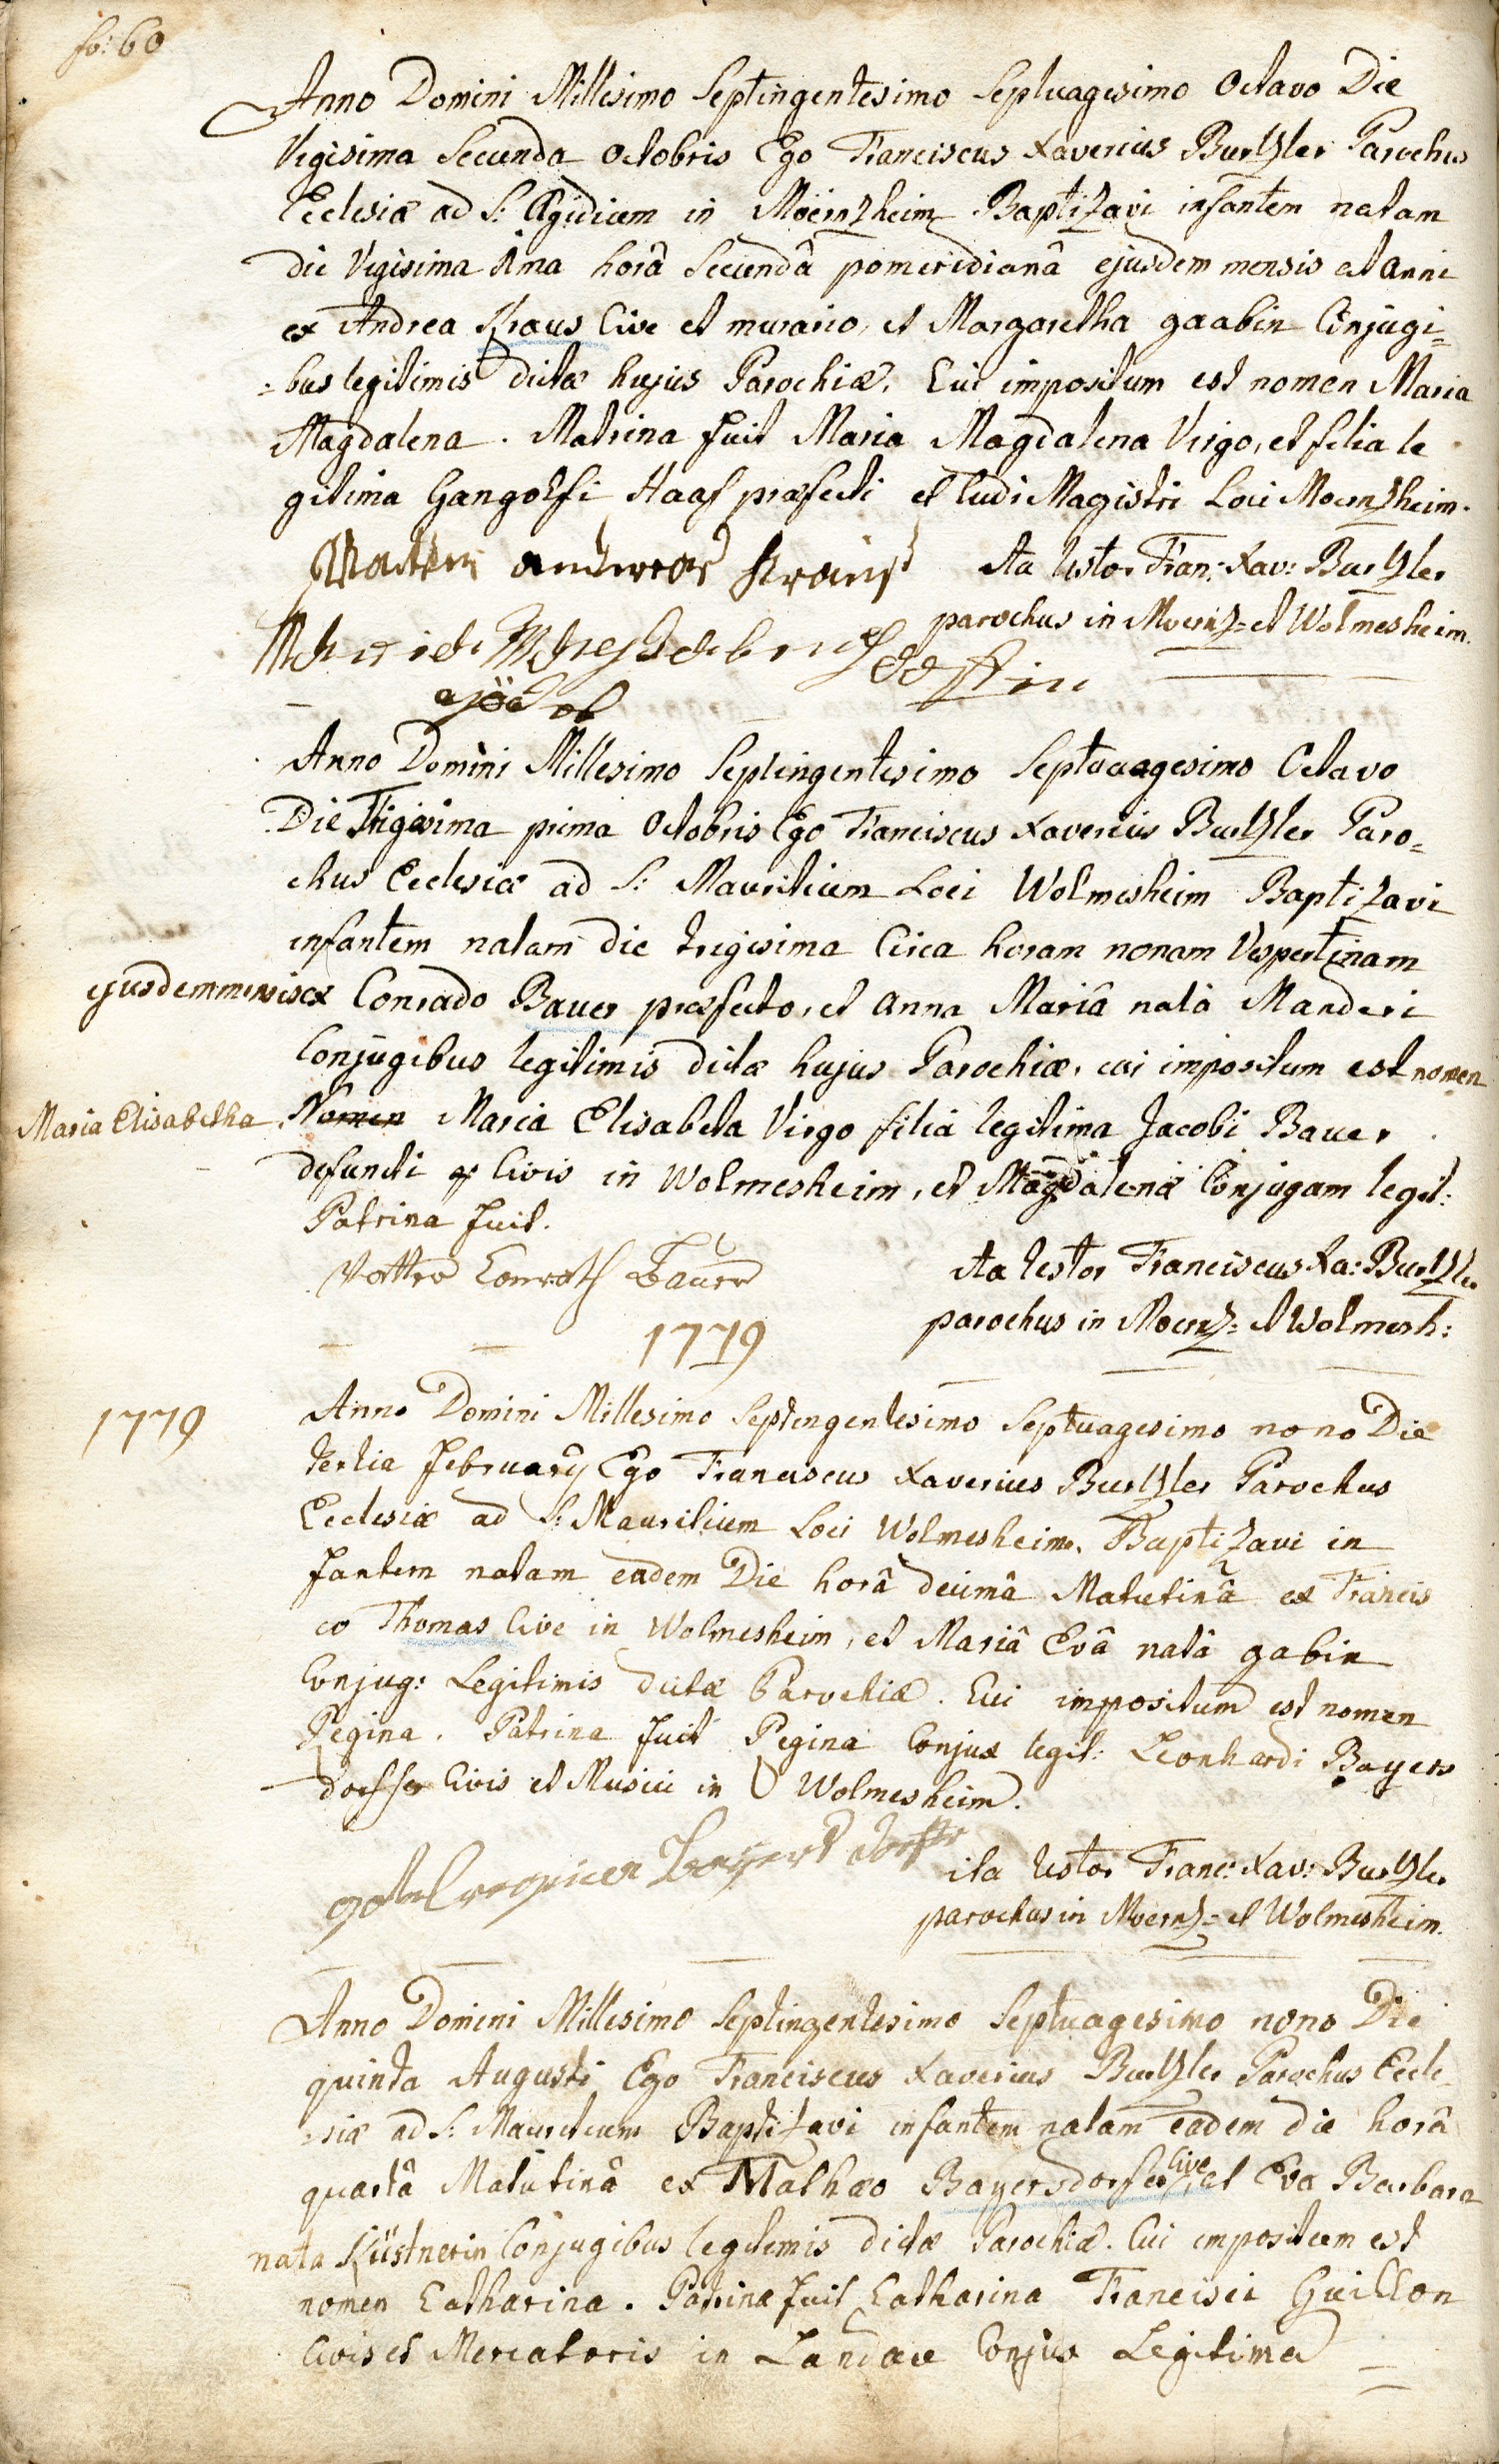 fo: 60
Anno Domini Millesimo Septingentesimo Septuagesimo Octavo Die
Vigisima Secunda Octobris Ego Franciscus Xaverius Burtzler Parochus
Eclesiæ ad S: Ægidium in Moërntzheim Baptizavi infantem natam
die Vigisima 1ma horâ Secundâ pomeridianâ ejusdem mensis et anni
ex Andrea Kraus Cive et murario, et Margaretha gaabin Conjugi=
=bus legitimis dictæ hujus Parochiæ. Cui impositum est nomen Maria
Magdalena. Matrina fuit Maria Magdalena Virgo, et filia le
gitima Gangolfi Haas præfecti et Ludi Magistri Loci Moerntzheim.
Ita testor Fran: Xav: Burtzler
parochus in Moerntz= et Wolmesheim.
Anno Domini Millesimo Septingentesimo Septuagesimo Octavo
Die Trigesima prima Octobris Ego Franciscus Xaverius Burtzler Paro=
chus Ecclesiæ ad S: Mauritium Loci Wolmesheim Baptizavi
infantem natam die trigesima Circa horam nonam Vespertinam
ejusdem mensis ex Conrado Bauer præfecto, et Anna Mariâ natâ Manderi
Conjugibus legitimis dictæ hujus Parochiæ, cui impositum est nomen
Maria Elisabetha. Nomen Maria Elisabeta Virgo filia legitima Jacobi Bauer
defuncti Civis in Wolmesheim, et Magdalenæ Conjugam legit:
Patrina fuit.
Vatter Conrath Bauer
Ita testor Franciscus Xa: Burtzler
parochus in Moerntz= et Wolmesh:
1779
1779
Anno Domini Millesimo Septingentesimo Septuagesimo nono Die
tertia February Ego Franciscus Xaverius Burtzler Parochus
Ecclesiæ ad S: Mauritium Loci Wolmesheim. Baptizavi in
fantem natam eadem Die horâ decimâ Matutinâ ex Francis
co Thomas Cive in Wolmesheim, et Mariâ Evâ natâ gabin
Conjug: Legitimis dictæ Parochiæ. Cui impositum est nomen
Regina. Patrina fuit Regina Conjux legit: Leonhardi Bayers
dorffer Civis et Musici in Wolmesheim.
ita testor Franc: Xav: Burtzler
parochus in Moerntz= et Wolmesheim.
Anno Domini Millesimo Septingentesimo Septuagesimo nono Die
quinta Augusti Ego Franciscus Xaverius Burtzler Parochus Eccle
=siæ ad S: Mauritium Baptizavi infantem natam eadem die horâ
quartâ Matutinâ ex Mathæo Bayersdorfer Cive, et Eva Barbara
nata Küstnerin Conjugibus legitimis dictæ Parochiæ. Cui impositum est
nomen Catharina. Patrina fuit Catharina Francisci Guillon
Civis et Mercatoris in Landau Conjux Legitima